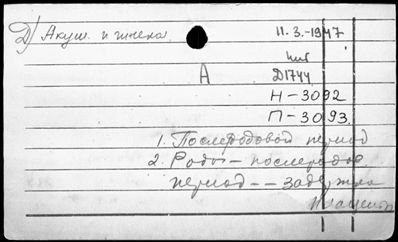 Д) Акуш. и гинек. 11.3.-1947
А
Д1744
Н-3092
П-3093
1. Послеродовой период
2. Роды - послеродов.
период -- задержка
плаценты